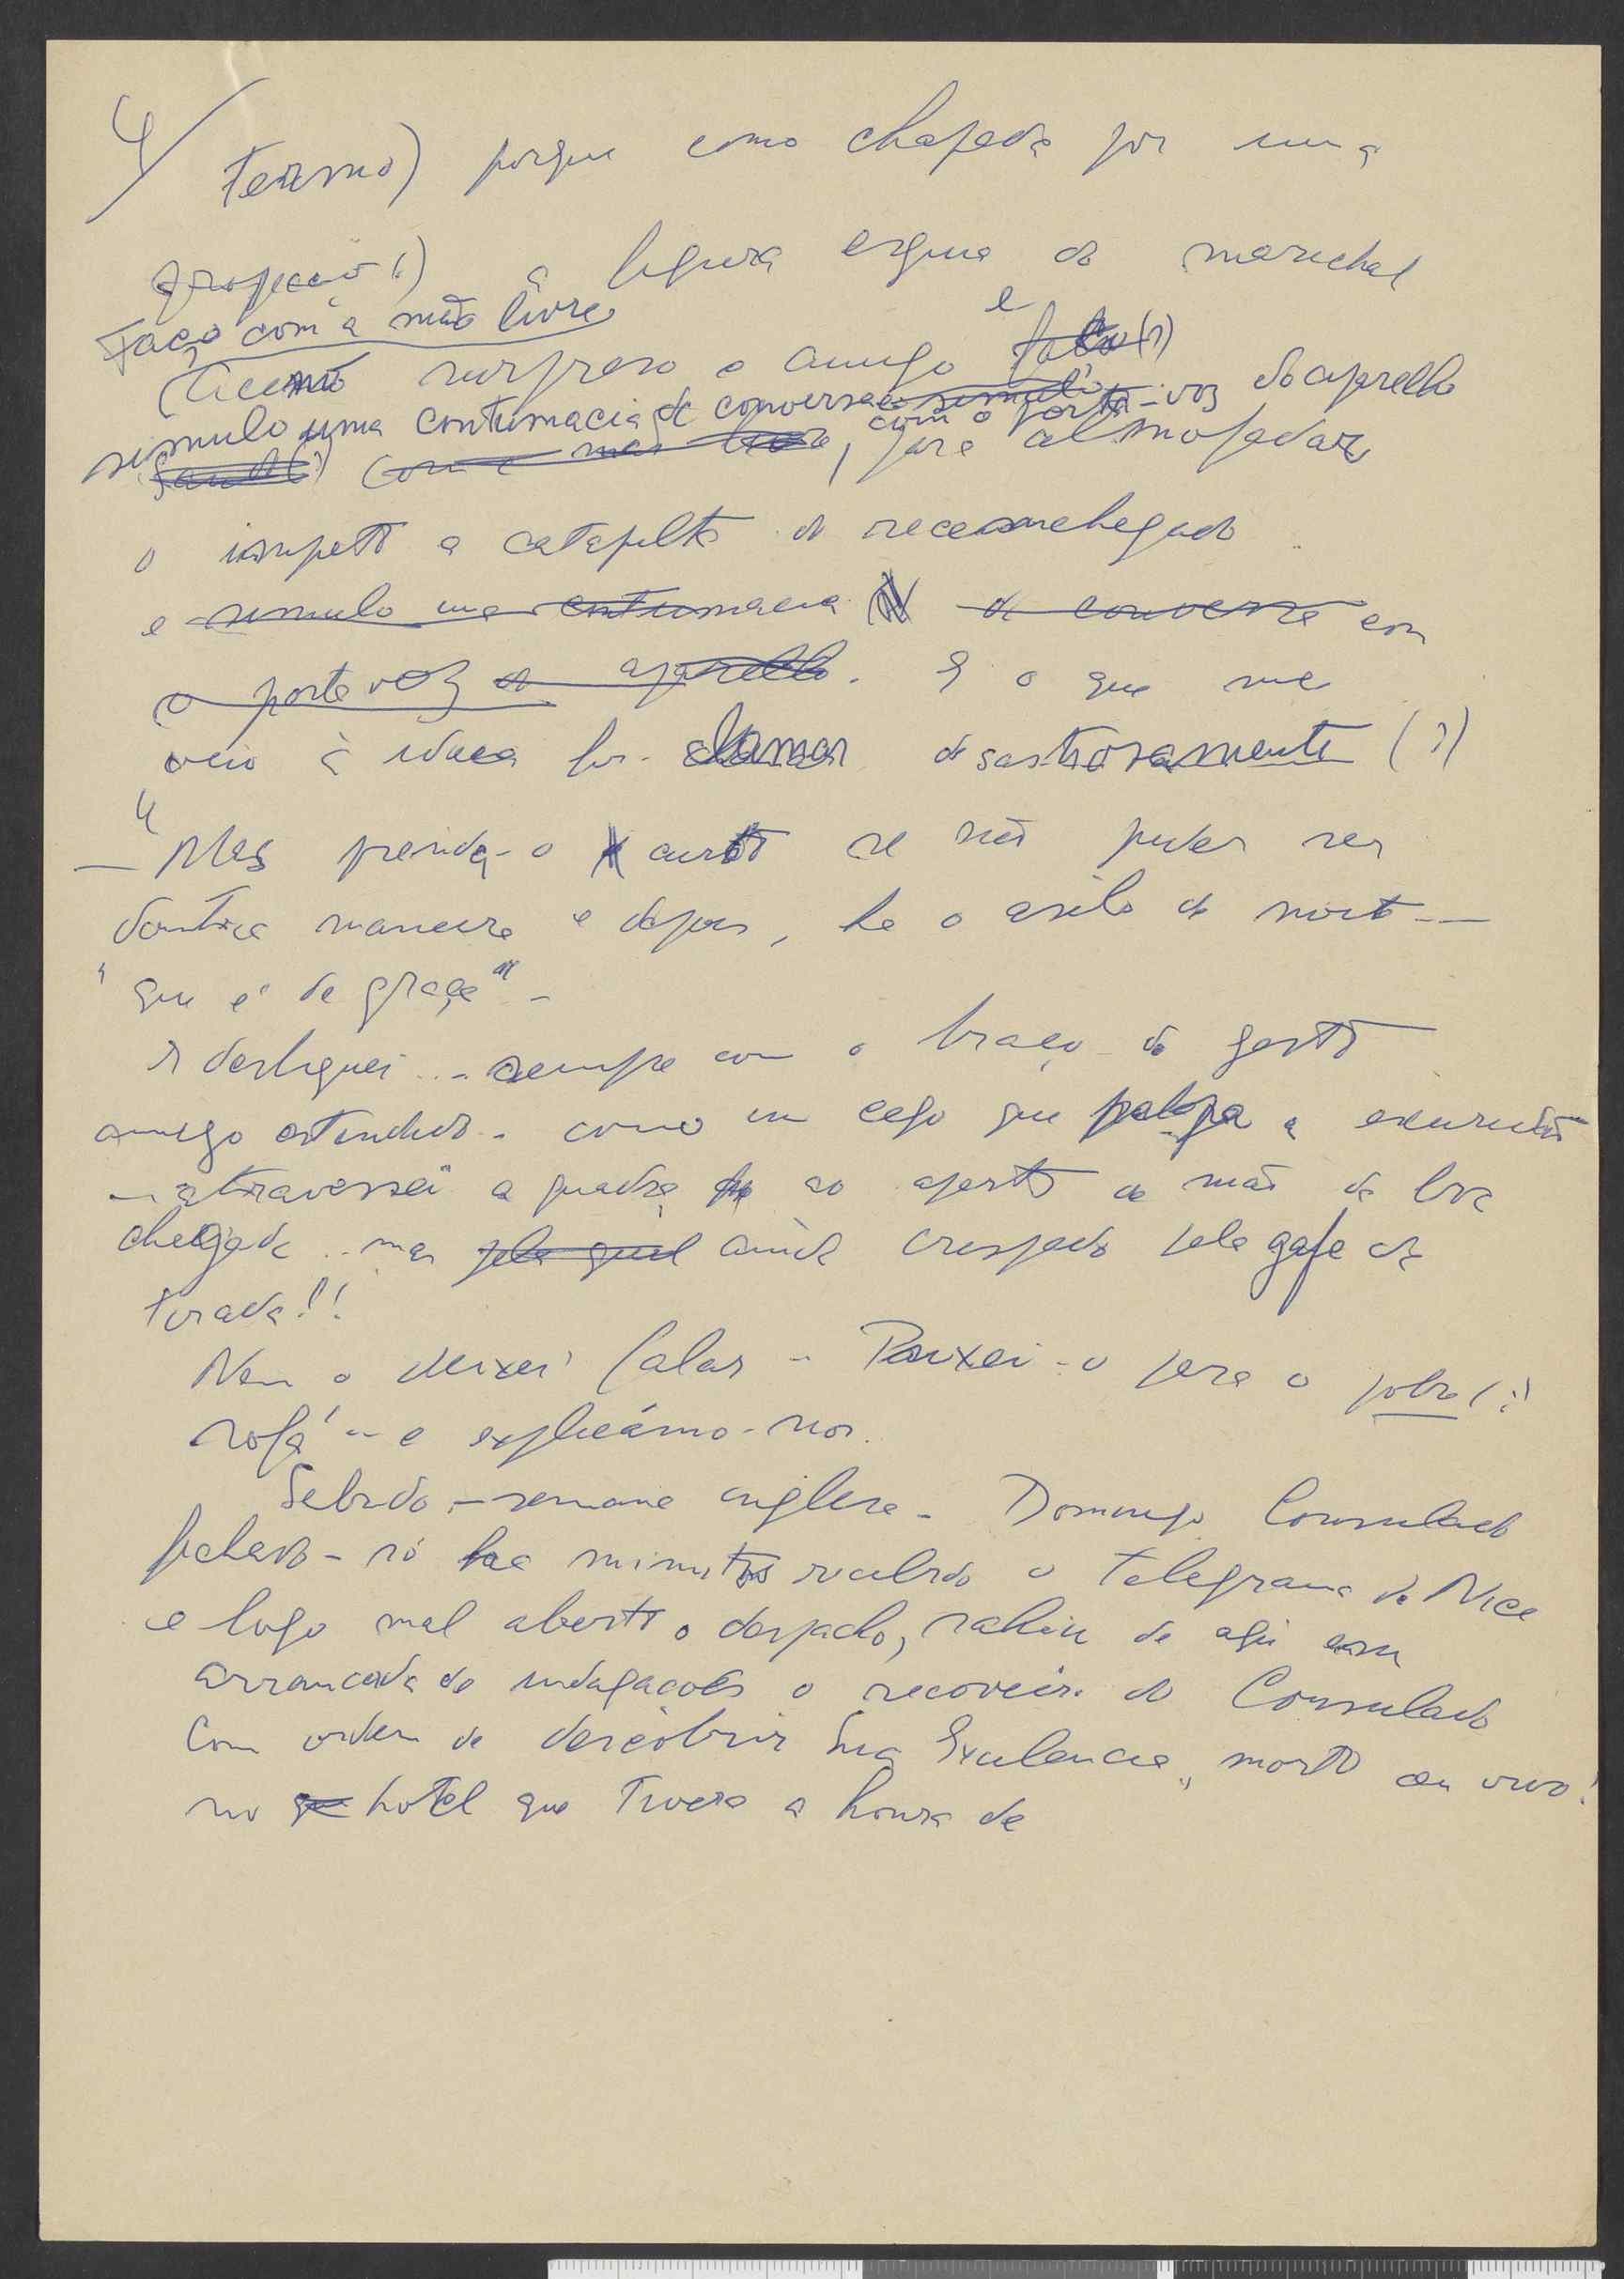 4/
termo) porque como chapada por uma
projecção (?) a figura esguia do marechal
Faço com a mão livre
(Aceno surpreso o amigo e
simulo uma contumacia de conversa com o porta-voz do aparelho
com a mão livre, para almofadar
o impeto a catapulta do recemchegado
e simulo uma contumacia de conversa com
o porta voz do aparelho. E o que me
veio à ideia foi clamar desastrosamente (?)
— "Mas prenda-o curto se não puder ser
doutra maneira e depois, ha o asilo da noite --
"que é de graça" -
E desliguei .. - sempre com o braço do gesto
amigo estendido - como um cego que palpa a escuridão
- atravessei a quadra ao aperto de mão da boa
chegada .. mas pela qual ainda crispado pela gafe da
tirada!!
Nem o deixei falar - Puxei-o para o sobre (?)
sofá - e explicámo-nos.
Sabado, - semana inglesa - Domingo Consulado
fechado - só ha minutos recebido o telegrama de Nice
e logo mal aberto o despacho, sahiu de aqui em
arrancada de indagacoes o recoveiro do Consulado
Com ordem de descobrir Sua Excelencia, morto ou vivo!
no hotel que tivera a honra de